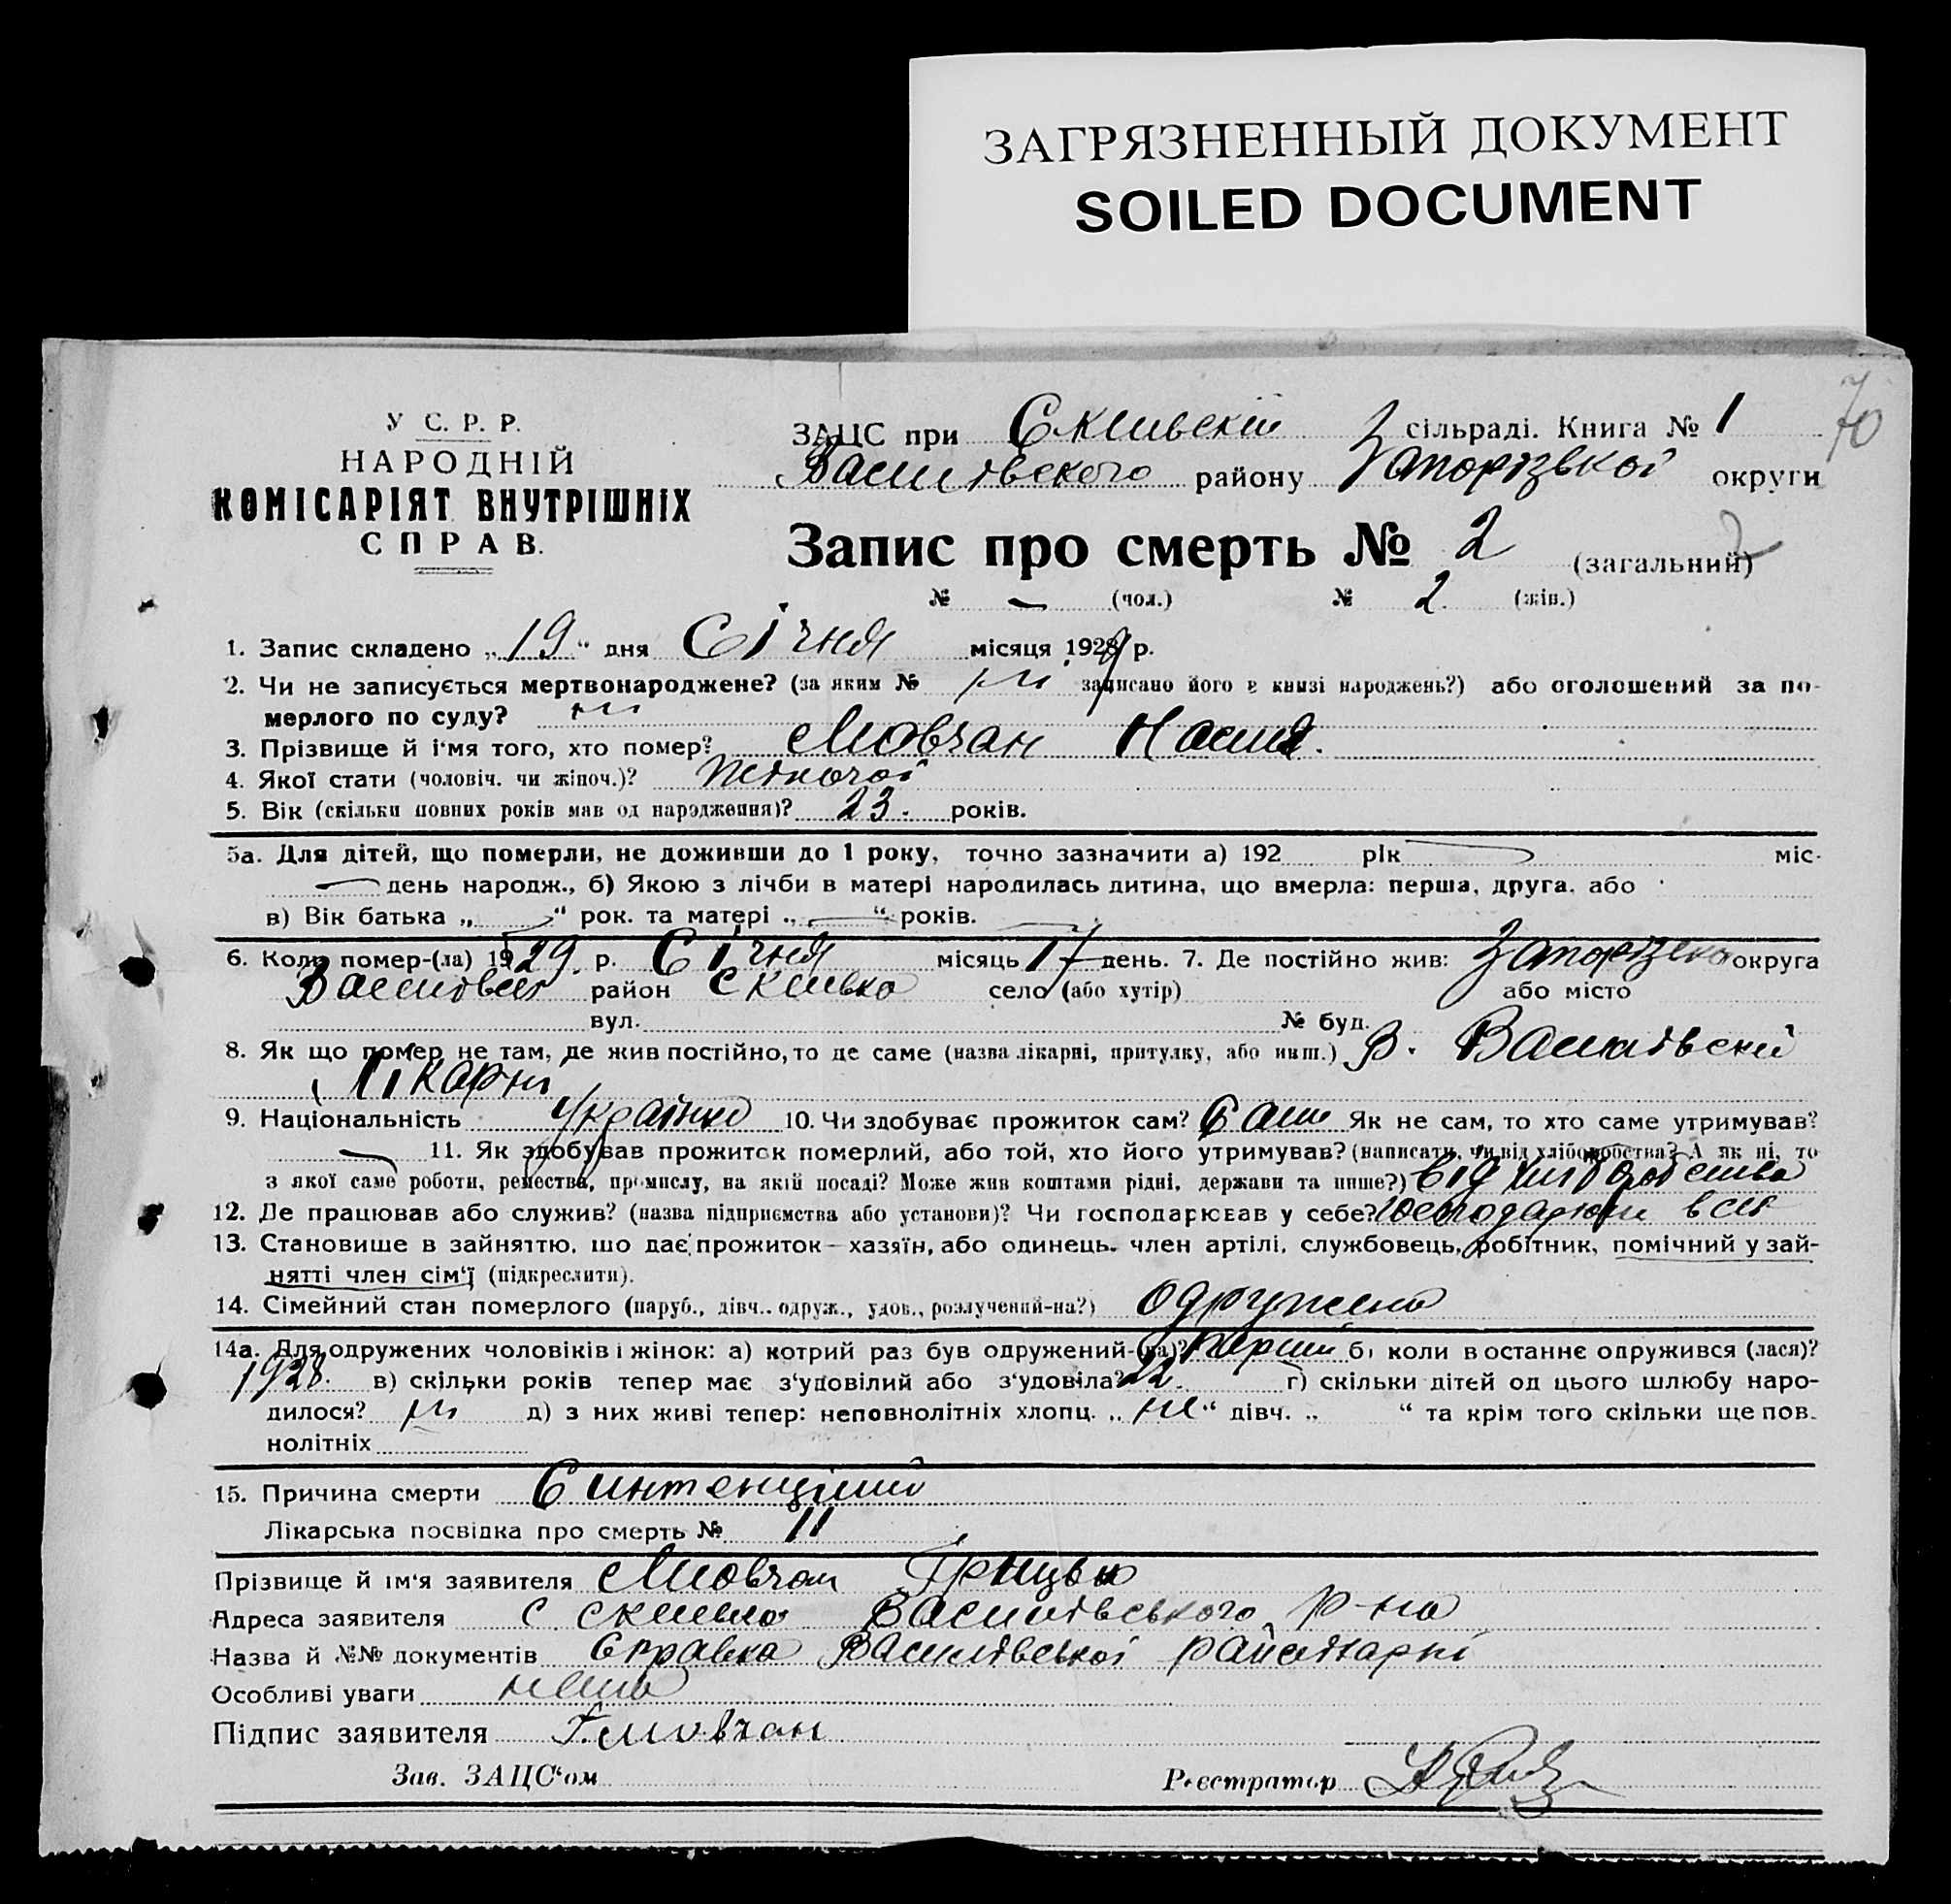 ЗАГРЯЗНЕННЫЙ ДОКУМЕНТ
SOILED DOCUMENT
70
У С. Р. Р.
НАРОДНІЙ
КОМІСАРІЯТ ВНУТРІШНІХ
СПРАВ.
ЗАЦС при Скельській сільраді. Книга № 1
Василівського району Запорізької округи
Запис про смерть № 2 (загальний)
2
№ — (чол.) № 2 (жін.)
1. Запис складено „19“ дня Січня місяця 1929 р.
2. Чи не записується мертвонароджене? (за яким № ні записано його в книзі народжень?) або оголошений за по-
мерлого по суду? ні
3. Прізвище й ім'я того, хто помер? Мовчан Настя.
4. Якої стати (чоловіч. чи жіноч.)? Жіночої
5. Вік (скільки повних років мав од народження)? 23. років.
5а. Для дітей, що померли, не доживши до 1 року, точно зазначити а) 192 рік — міс.
— день народж., б) Якою з лічби в матері народилась дитина, що вмерла: перша, друга. або
в) Вік батька „ — “ рок. та матері „ — “ років.
6. Коли помер-(ла) 1929 р. Січня місяць 17 день. 7. Де постійно жив: Запорізька округа
район Скелька село (або хутір) або місто
вул. № буд.
8. Як що помер не там, де жив постійно, то де саме (назва лікарні, притулку, або инш.) В. Василівській
Лікарні
9. Національність Українка 10. Чи здобуває прожиток сам? Сами Як не сам, то хто саме утримував?
— 11. Як здобував прожиток померлий, або той, хто його утримував? (написати, чи від хліборобства? А як ні, то
з якої саме роботи, ремества, промислу, на якій посаді? Може жив коштами рідні, держави та инше?) від хліборобства
12. Де працював або служив? (назва підприємства або установи)? Чи господарював у себе?
13. Становище в зайняттю, що дає прожиток—хазяїн, або одинець. член артілі, службовець, робітник, помічний у зай-
нятті член сім'ї (підкреслити).
14. Сімейний стан померлого (паруб., дівч.. одруж., удов., розлучений-на?) Одружена
14а. Для одружених чоловіків і жінок: а) котрий раз був одружений-(на)? перший б) коли в останнє одружився (лася)?
1928. в) скільки років тепер має з'удовілий або з'удовіла? 22. г) скільки дітей од цього шлюбу наро-
дилося? ні д) з них живі тепер: неповнолітніх хлопц. „ не “ дівч. „ “ та крім того скільки ще пов.
нолітніх
15. Причина смерти
Лікарська посвідка про смерть № 11
Прізвище й ім'я заявителя Мовчан Грицько
Адреса заявителя с Скелька Василівського р-на
Назва й №№ документів Справка Василівської райлікарні
Особливі уваги нема
Підпис заявителя Г. Мовчан
Зав. ЗАЦС'ом Реєстратор